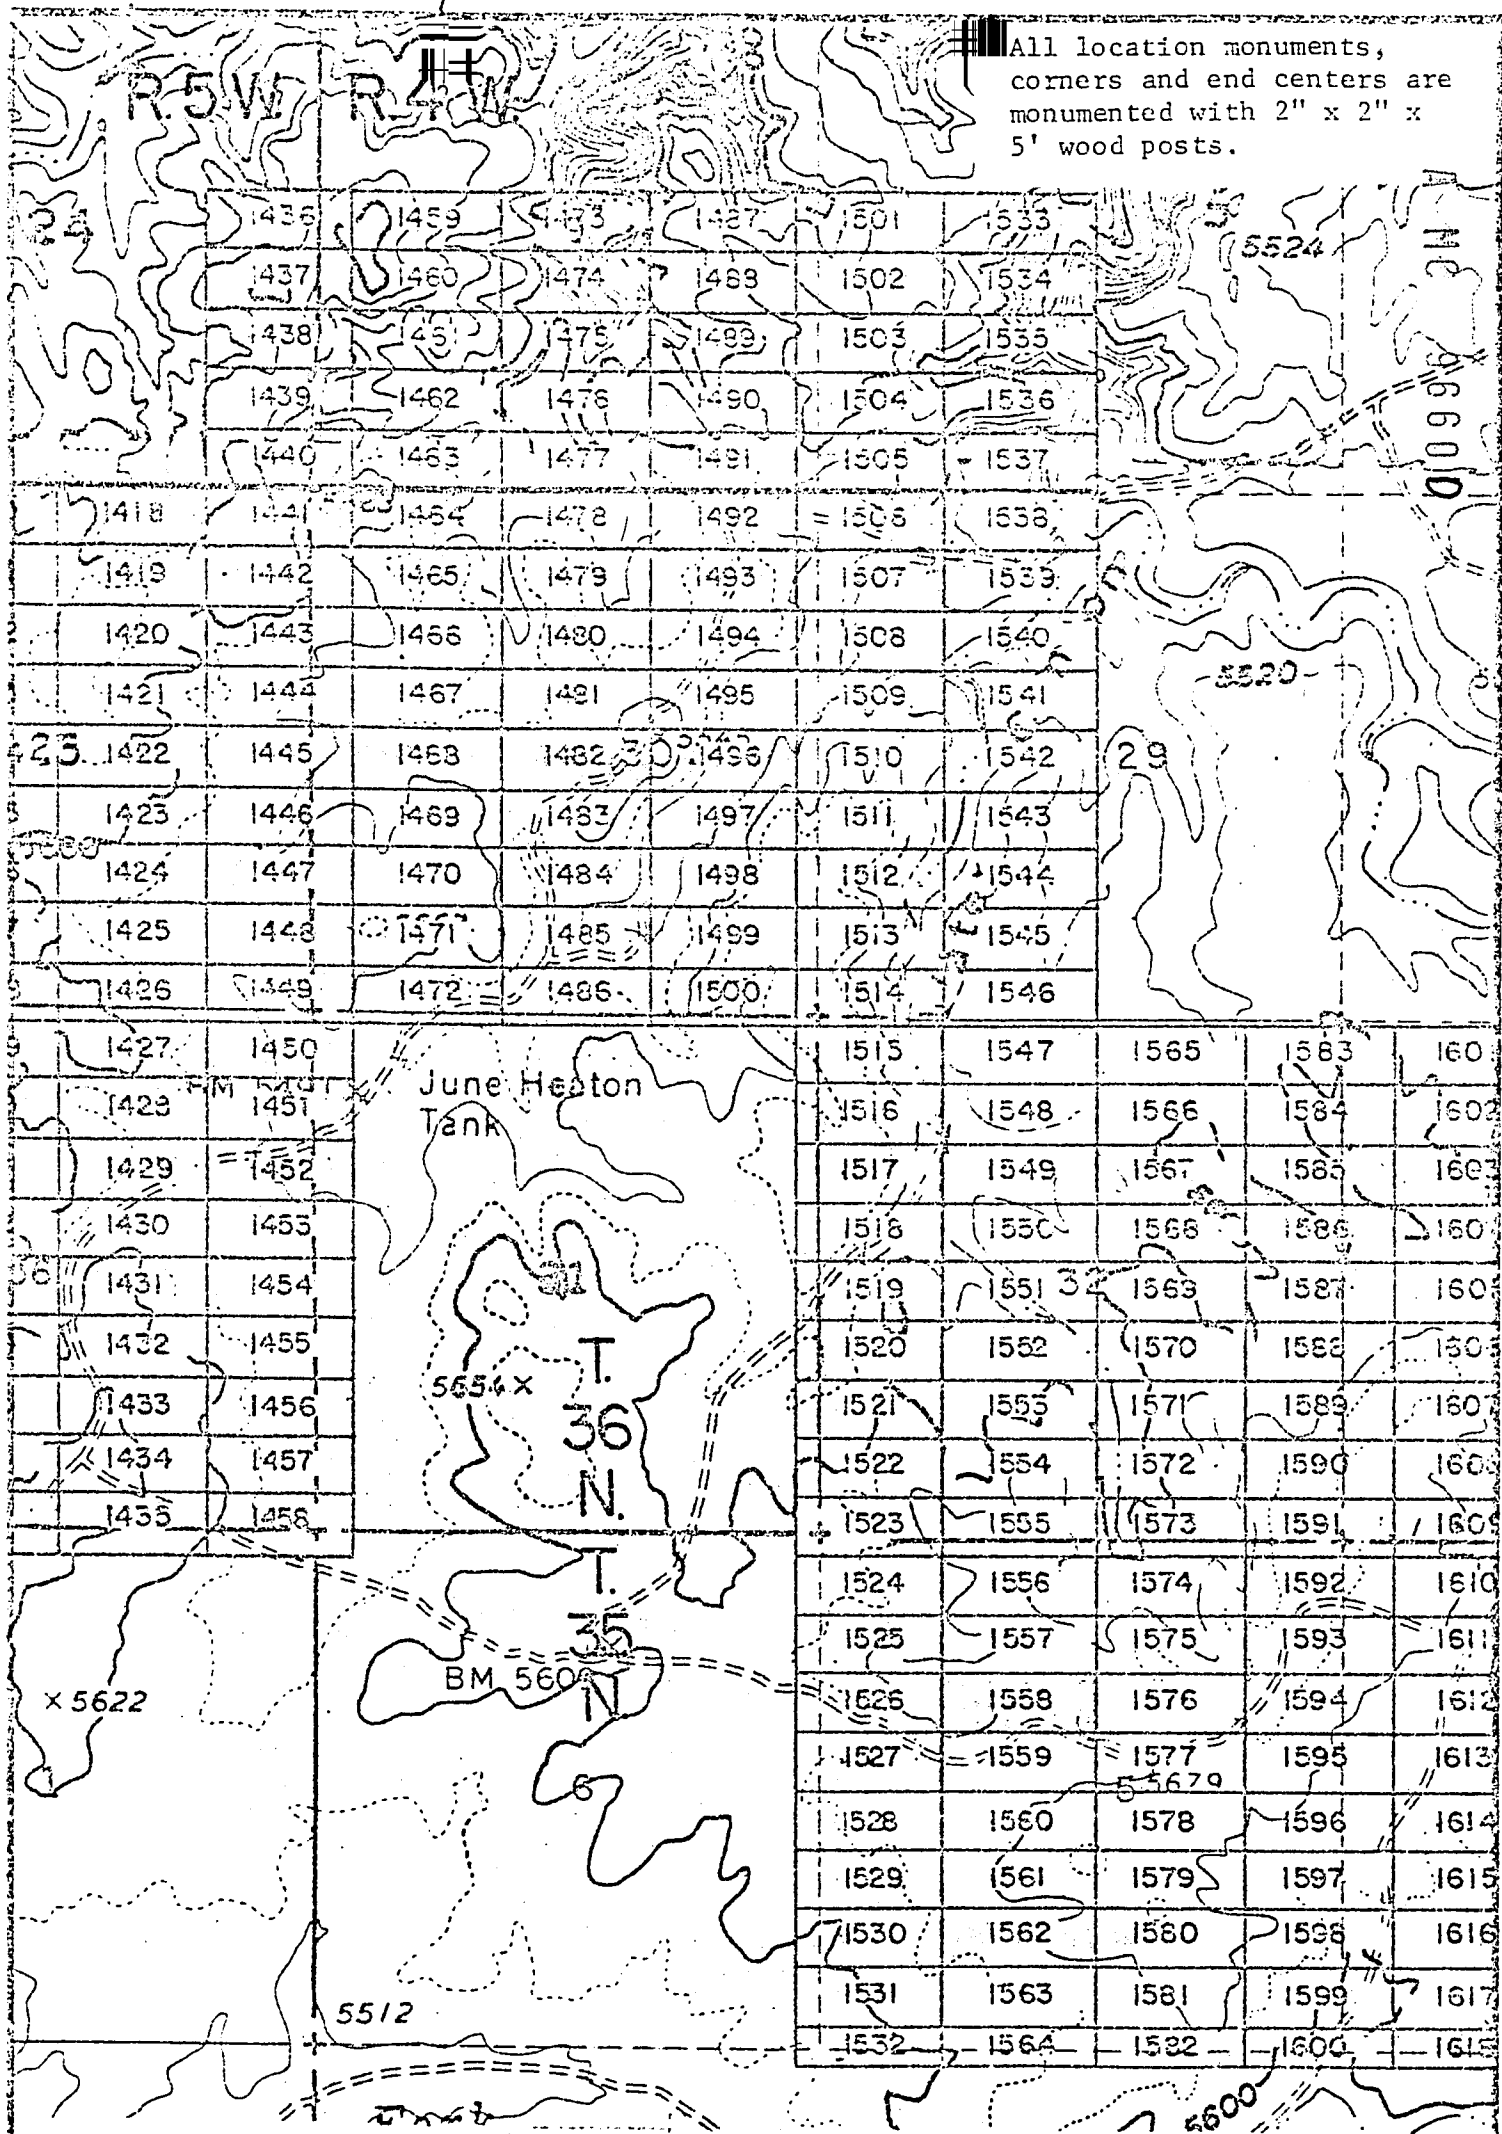 All location monuments,
corners and end centers are
monumented with 2" x 2" x
5' wood posts.
R.5W. R.4W.
24 1436 1459 1473 1487 1501 1533
5524
1437 1460 1474 1488 1502 1534
1438 1461 1475 1489 1503 1535
1439 1462 1476 1490 1504 1536
1440 1463 1477 1491 1505 1537
1418 1441 1464 1478 1492 1506 1538
1419 1442 1465 1479 1493 1507 1539
1420 1443 1466 1480 1494 1508 1540
1421 1444 1467 1481 1495 1509 1541
5520
1422 1445 1468 1482 30 1496 1510 1542 29
1423 1446 1469 1483 1497 1511 1543
1424 1447 1470 1484 1498 1512 1544
1425 1448 1471 1485 1499 1513 1545
1426 1449 1472 1486 1500 1514 1546
1427 1450 1515 1547 1565 1583
June Heaton
Tank
1428 1451 1516 1548 1566 1584 1602
1429 1452 1517 1549 1567 1585 1603
1430 1453 1518 1550 1568 1586
1431 1454 31 1519 1551 32 1569 1587
1432 1455 1520 1552 1570 1588
T.
36
N.
5654 ×
1433 1456 1521 1553 1571 1589
1434 1457 1522 1554 1572 1590
1435 1458 1523 1555 1573 1591 1609
T.
35
N
1524 1556 1574 1592 1610
1525 1557 1575 1593 1611
BM 560
× 5622
1526 1558 1576 1594 1612
1527 1559 1577 1595 1613
5 5679
6
1528 1560 1578 1596 1614
1529 1561 1579 1597 1615
1530 1562 1580 1598 1616
1531 1563 1581 1599 1617
5512
1532 1564 1582 1600 1618
5600